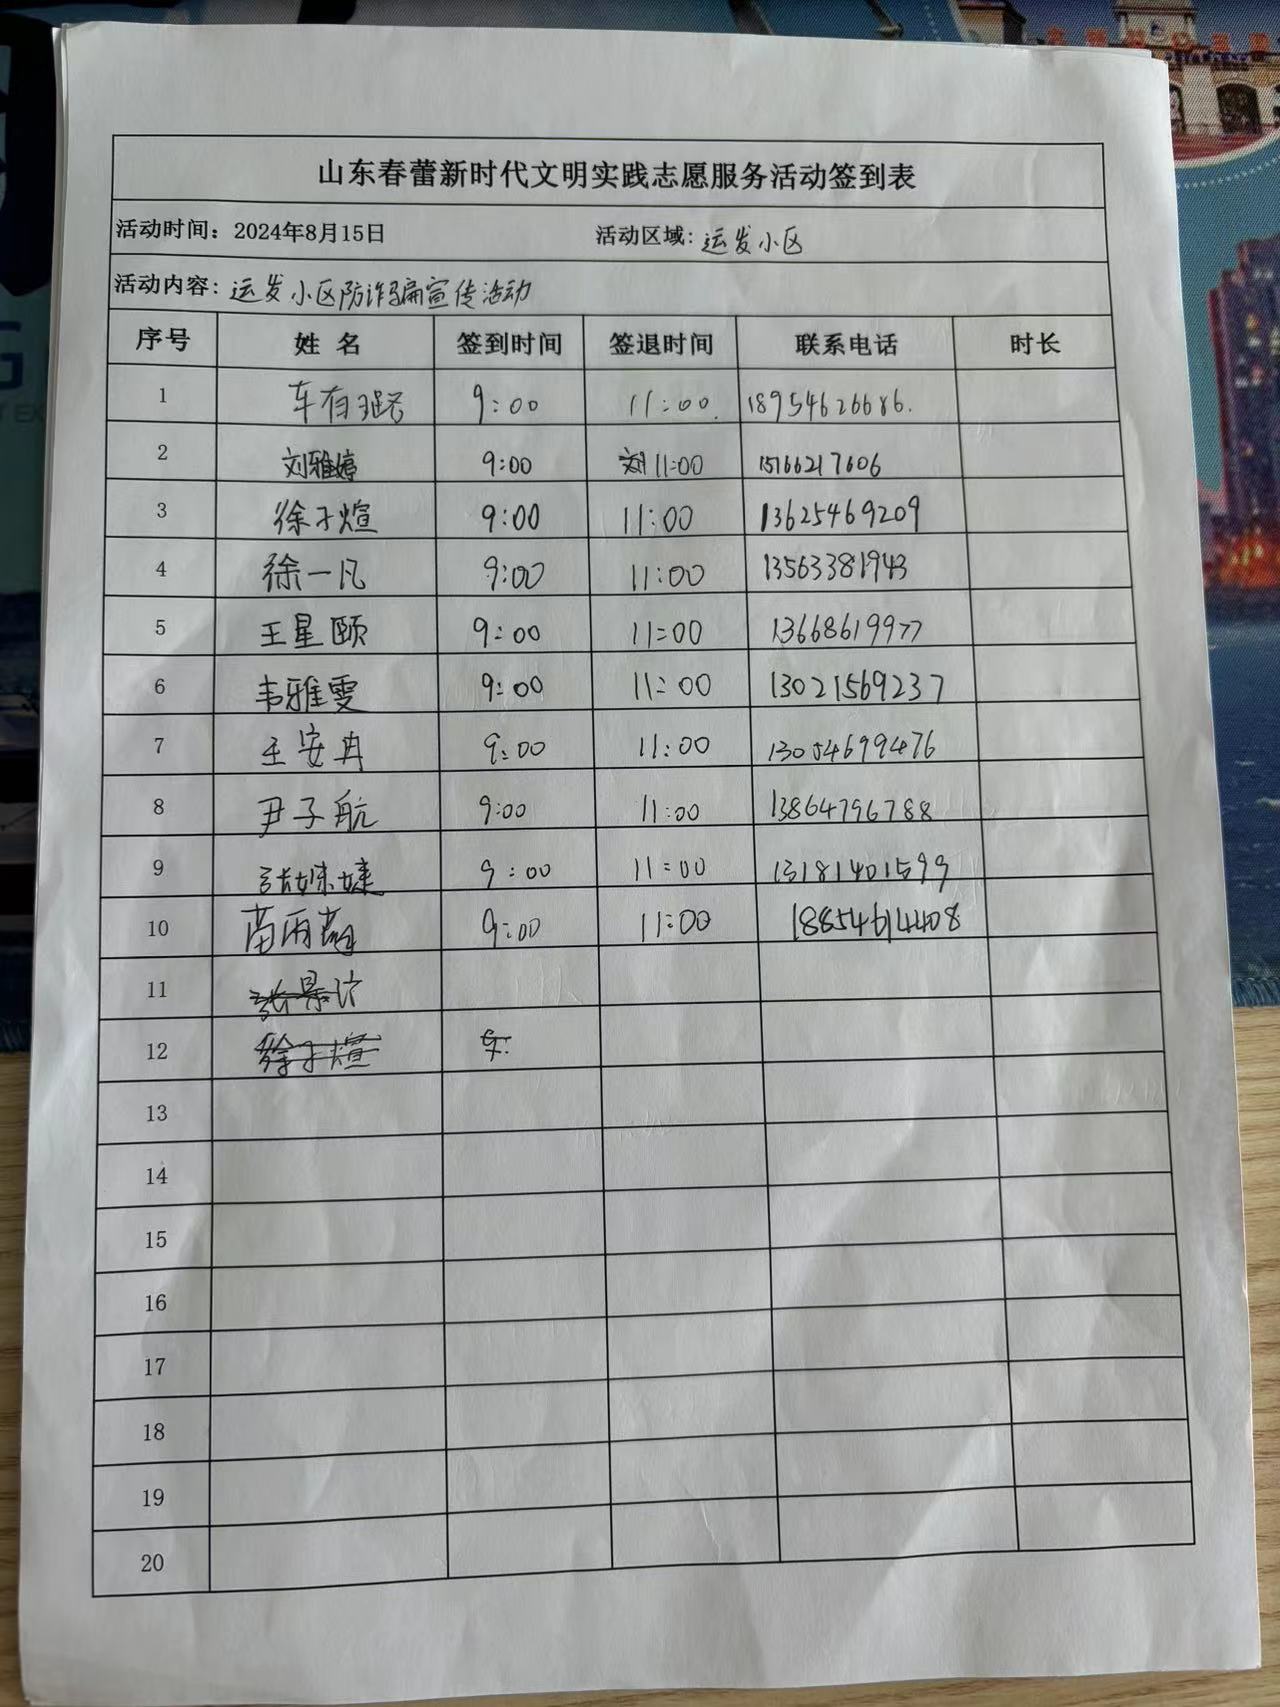 山东春蕾新时代文明实践志愿服务活动签到表
活动时间：2024年8月15日 活动区域：运发小区
活动内容：运发小区防诈骗宣传活动
序号 姓名 签到时间 签退时间 联系电话 时长
1 车有路 9:00 11:00. 18954626686.
2 刘雅婷 9:00 11:00 15166217606
3 徐子煊 9:00 11:00 13625469209
4 徐一凡 9:00 11:00 13563381943
5 王星颐 9:00 11:00 13668619977
6 韦雅雯 9:00 11:00 13021569237
7 王安冉 9:00 11:00 13054699476
8 尹子航 9:00 11:00 13864796788
9 9:00 11:00 13181401599
10 苗雨蔚 9:00 11:00 18854614408
11
12 徐子煊
13
14
15
16
17
18
19
20